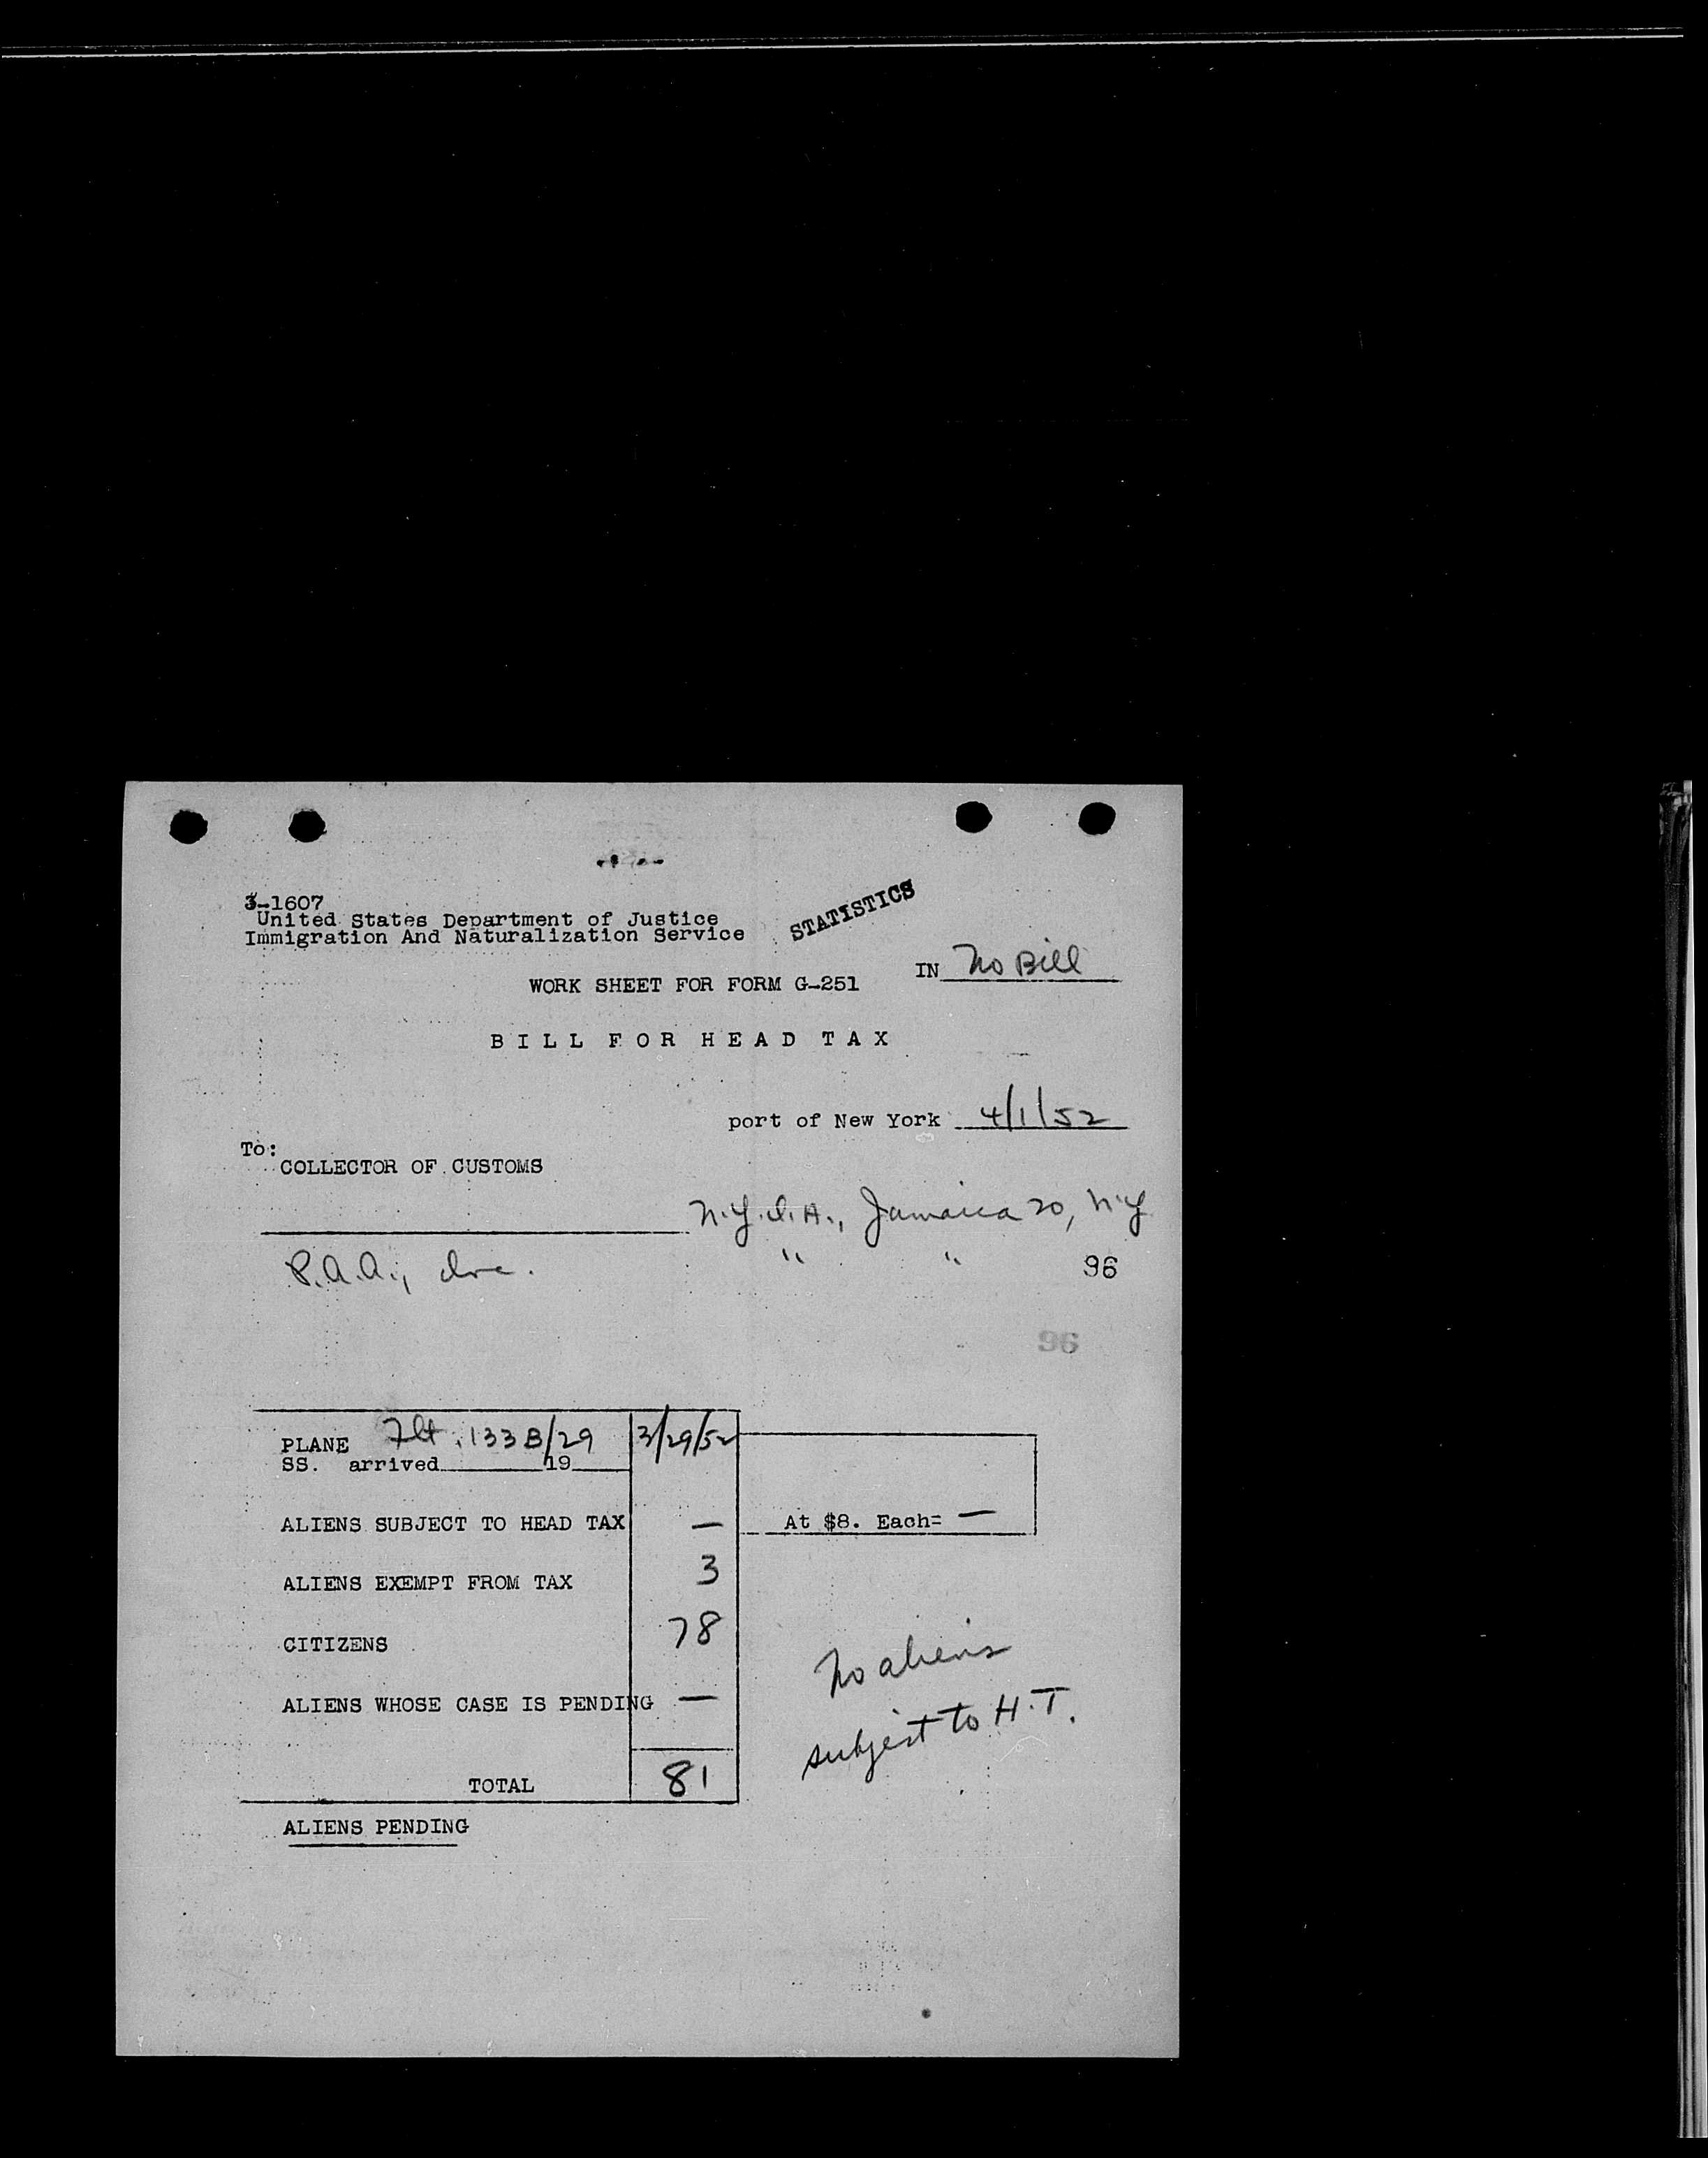 3-1607
United States Department of Justice
Immigration And Naturalization Service
STATISTICS
IN No Bill
WORK SHEET FOR FORM G-251
BILL FOR HEAD TAX
port of New York 4/1/52
To:
COLLECTOR OF CUSTOMS
N.Y.I.A., Jamaica 20, N.Y
P.A.A., Inc. " " 96
96
PLANE Flt. 133B/29 3/29/52
SS. arrived 19
ALIENS SUBJECT TO HEAD TAX — At $8. Each= —
ALIENS EXEMPT FROM TAX 3
CITIZENS 78
No aliens
ALIENS WHOSE CASE IS PENDING —
subject to H.T.
TOTAL 81
ALIENS PENDING